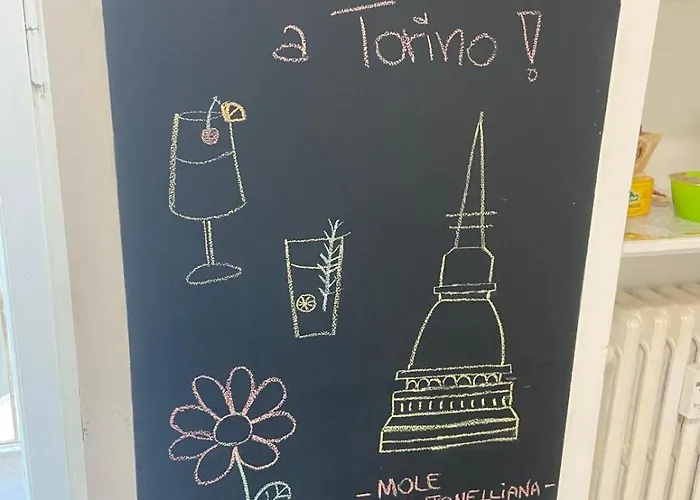 a Torino!
- MOLE
ANTONELLIANA -